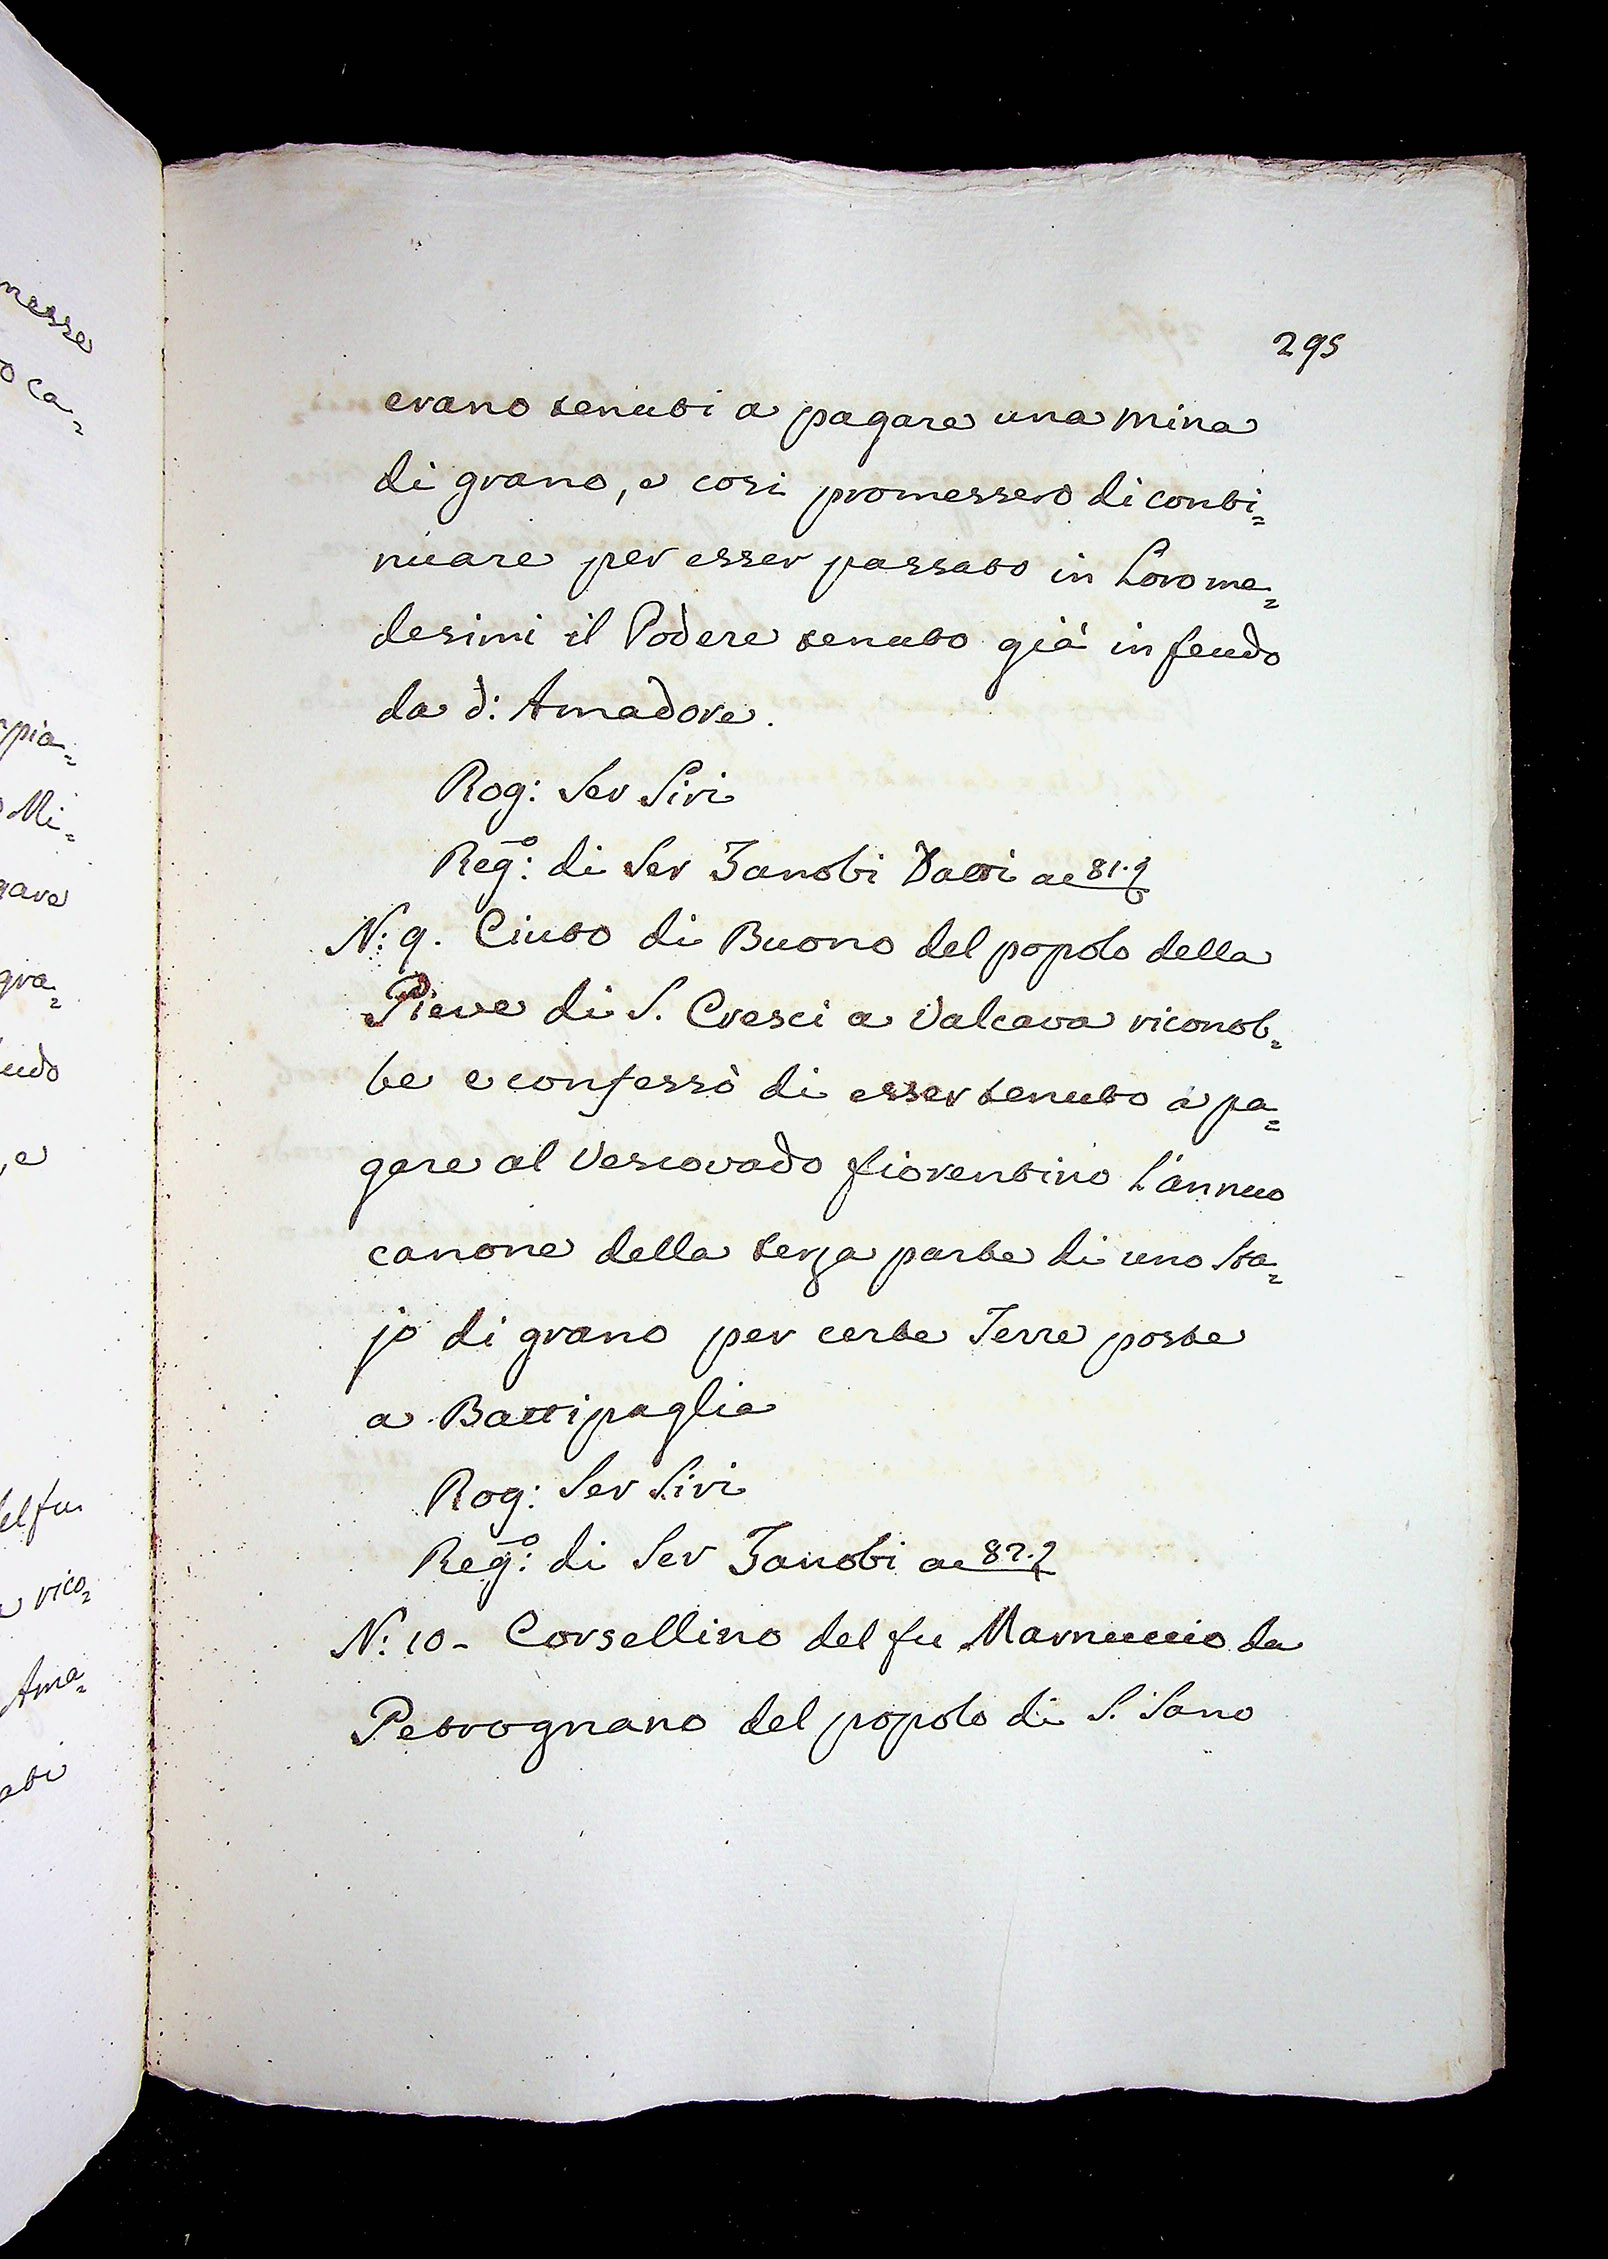 295
erano tenuti a pagare una mina
di grano, e cosi promessero di conti=
nuare per esser passato in Loro me=
desimi il Podere tenuto già in feudo
da d: Amadore.
Rog: Ser Siri
Reg:º di Ser Zanobi Datti a
N: 9. Ciuto di Buono del popolo della
Pieve di S. Cresci a Valcava riconob=
be e confessò di esser tenuto a pa=
gare al Vescovado fiorentino l'annuo
canone della terza parte di uno sta=
jo di grano per certe Terre poste
a Battipaglia
Rog: Ser Siri
Reg:º di Ser Zanobi a
N: 10 - Corsellino del fu Marnuccio da
Petrognano del popolo di S. Sano
messe
o ca=
pia=
Mi=
gare
gra=
eudo
, e
del fu
rico=
Ama=
ati